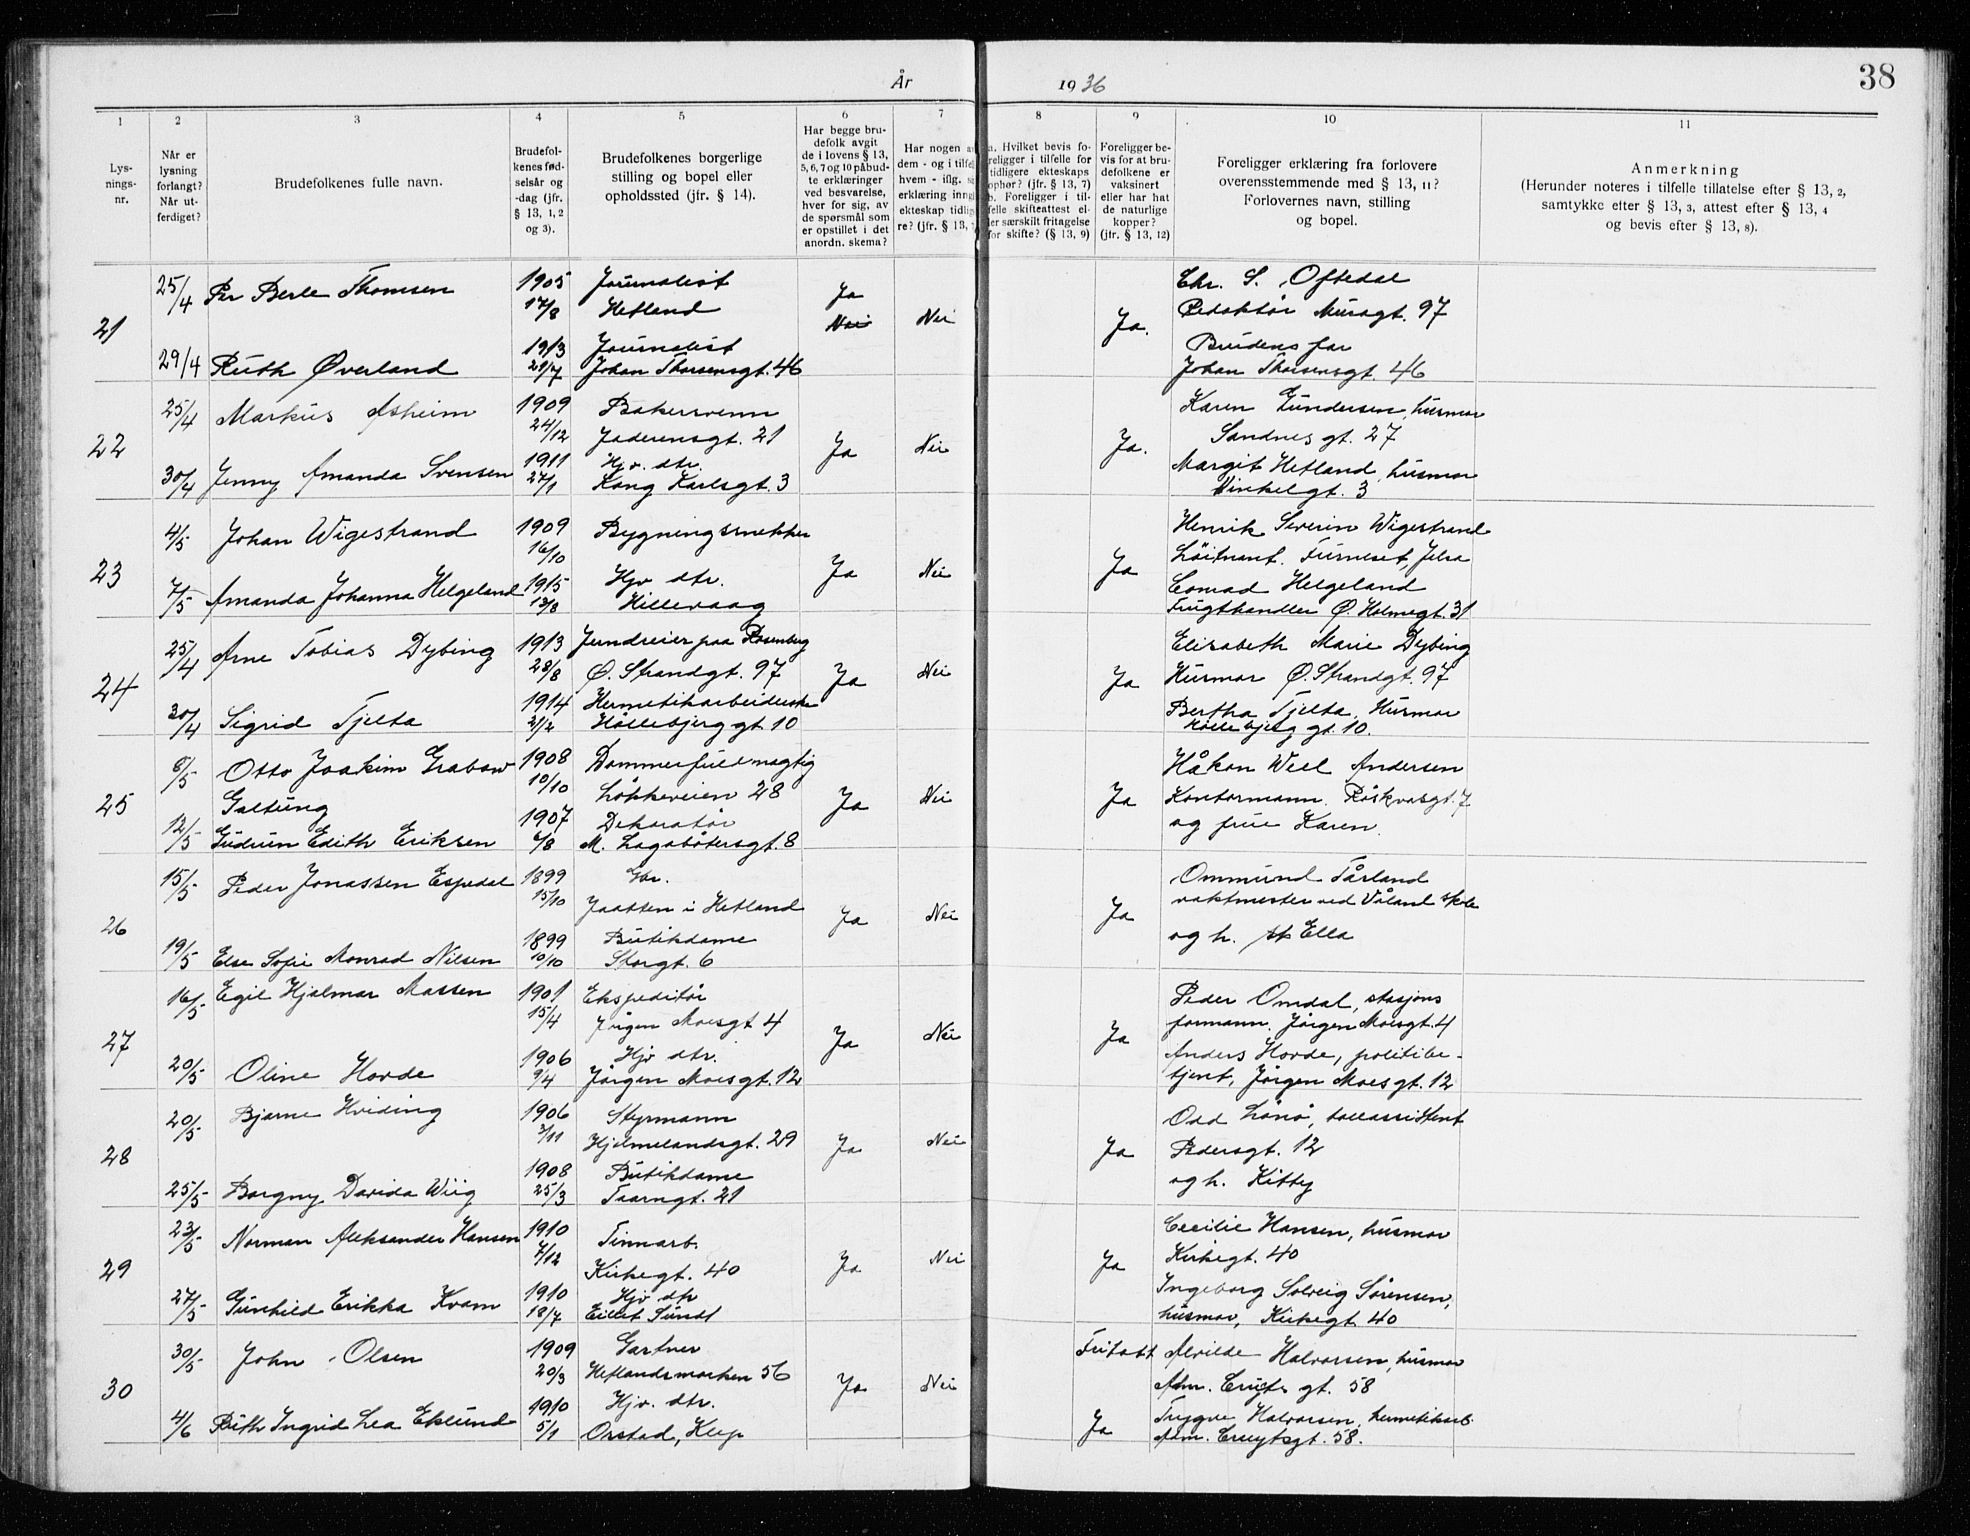 År 1936
38
1 2 3 4 5 6 7 8 9 10 11
Lys-
nings-
nr.
Når er
lysning
forlangt?
Når ut-
ferdiget?
Brudefolkenes fulle navn.
Brudefol-
kenes fød-
selsår og
-dag (jfr.
§ 13, 1, 2
og 3).
Brudefolkenes borgerlige
stilling og bopel eller
opholdssted (jfr. § 14).
Har begge bru-
defolk avgit
de i lovens § 13,
5, 6, 7 og 10 påbud-
te erklæringer
ved besvarelse,
hver for sig, av
de spørsmål som
er opstillet i det
anordn. skema?
Har nogen a
dem - og i tilfel
hvem - iflg. s
erklæring inng
ekteskap tidlig
re? (jfr. § 13,
a. Hvilket bevis fo-
religger i tilfelle for
tidligere ekteskaps
ophør? (jfr. § 13, 7)
b. Foreligger i til-
felle skifteattest el-
ler særskilt fritagelse
for skifte? (§ 13, 9)
Foreligger be-
vis for at bru-
defolkene er
vaksinert
eller har hat
de naturlige
kopper?
(jfr. § 13, 12)
Foreligger erklæring fra forlovere
overensstemmende med § 13, 11?
Forlovernes navn, stilling
og bopel.
Anmerkning
(Herunder noteres i tilfelle tillatelse efter § 13, 2,
samtykke efter § 13, 3, attest efter § 13, 4
og bevis efter § 13, 8).
21
25/4 Per Berle Thomsen 1905 Journalist Ja Chr. S. Oftedal
17/8 Hetland Nei Nei Ja. Redaktør Musagt. 97
1913 Journalist Brudens far
29/4 Ruth Øverland 29/7 Johan Thorsensgt. 46 Johan Thorsensgt. 46
22
25/4 Markus Asheim 1909 Bakersvenn Karen Gundersen, husmor
24/12 Jaderensgt. 21 Ja Nei Ja. Sandnesgt. 27
1911 Hjv. dtr. Margit Hetland, husmor
30/4 Jenny Amanda Svensen 27/1 Kong Karlsgt. 3 Vinkelgt. 3
23
4/5 Johan Wigestrand 1909 Bygningssnekker Henrik Severin Wigestrand
16/10 Ja Nei Ja Löitnant. Furneset, Jelsa
7/5 Amanda Johanna Helgeland 1915 Hjv dtr. Conrad Helgeland
13/8 Hillevaag Frugthandler Ø. Holmegt. 31
24
25/4 Arne Tobias Dybing 1913 Jerndreier paa Rosenberg Elisabeth Marie Dybing
28/8 Ø. Strandgt. 97 Ja Nei Ja Husmor Ø. Strandgt. 97
30/4 Sigrid Tjelta 1914 Hermetikarbeiderske Bertha Tjelta, Husmor
2/2 Höllebjerggt. 10 Höllebjerg gt. 10.
25
8/5 Otto Joakim Grabow 1908 Dommerfuldmagtig Håkon Well Andersen
Galtung 10/10 Lökkeveien 28 Ja Nei Ja Kontormann. Röskvasgt. 7
12/5 1907 Dekoratör og frue Karen.
Gudrun Edith Eriksen 4/8 M. Lagabötersgt. 8
26
15/5 Peder Jonassen Espedal 1899 Gbr. Ommund Tårland
15/10 Jaatten i Hetland Ja Nei Ja vaktmester ved Våland skole
1899 Butikdame og h. Ella
19/5 Else Sofie Monrad Nilsen 10/10 Storgt. 6
27
16/5 Egil Hjalmar Massen 1901 Ekspeditör Peder Omdal, stasjons
15/4 Jörgen Moesgt 4 Ja Nei Ja formann. Jörgen Moesgt. 4
1906 Hjv dtr. Anders Hovde, politibe-
20/5 Oline Hovde 9/4 Jörgen Moesgt. 12 tjent, Jörgen Moes gt. 12
28
20/5 Bjarne Hviding 1906 Styrmann Odd Lönö, tollassistent
3/11 Hjelmelandsgt. 29 Ja Nei Ja Pedersgt. 12
1908 Butikdame og h. Kitty
25/5 Borgny Davida Wiig 25/3 Taarngt. 21
29
23/5 Norman Aleksander Hansen 1910 Tinnarb. Cecilie Hansen, husmor
7/12 Kirkegt. 40 Ja Nei Ja Kirkegt. 40
1910 Hjv dtr Ingeborg Solveig Sörensen,
27/5 Gunhild Erikka Kvam 18/7 Eilert Sundt husmor, Kirkegt. 40
30
30/5 John Olsen 1909 Gartner Fritatt Alvilde Halvorsen, husmor
20/3 Hetlandsmarken 56 Ja Nei Adm. Cruyts gt. 58
1910 Hjv. dtr. Trygve Halvorsen, hermetikarb.
4/6 Ruth Ingrid Lea Eklund 5/1 Orstad, Klep Ja Adm. Cruytsgt. 58.